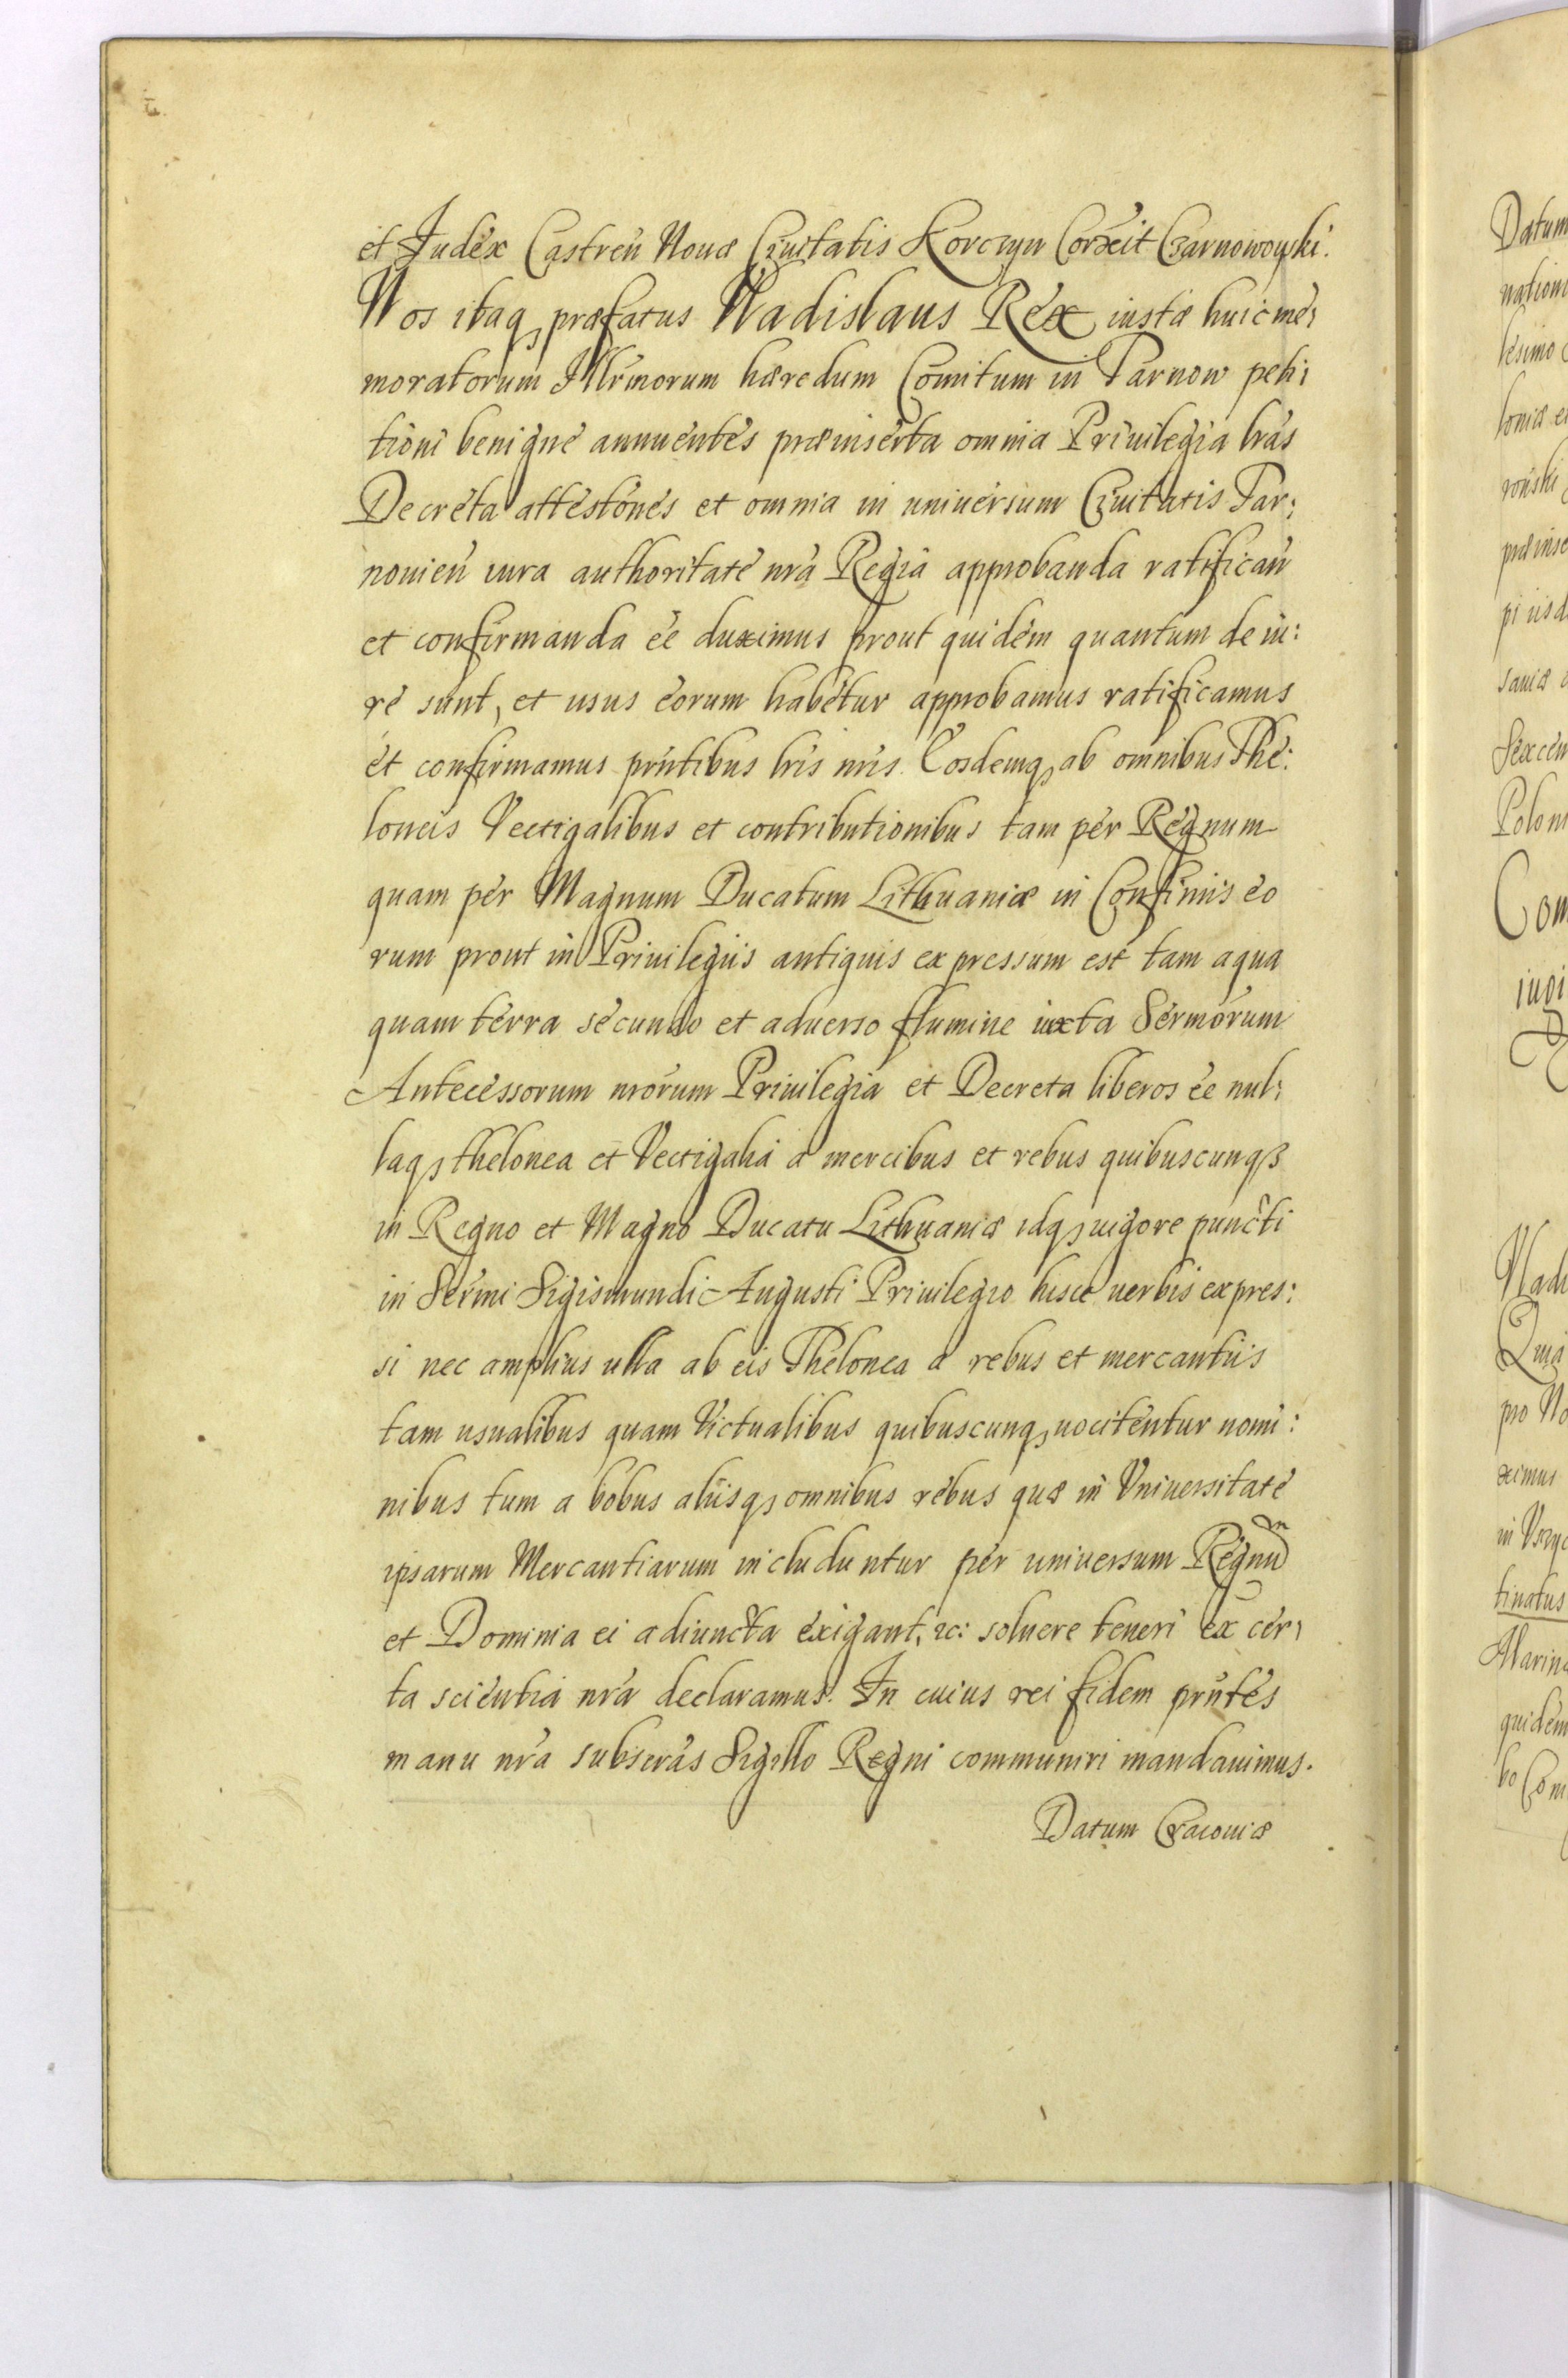 et Judex Castren̄ Nouæ Ciuitatis Korczyn Correxit Czarnowowski.
Nos itaqꝫ præfatus Vladislaus Rex iustæ huic me:
moratorum Illrmorum hæredum Comitum in Tarnow peti:
tioni benigne annuentes præinserta omnia Priuilegia lrās
Decreta attestōnes et omnia in uniuersum Ciuitatis Tar:
nouien̄ iura authoritate nrā Regia approbanda ratifican̄
et confirmanda ēe duximus prout quidem quantum de iu:
re sunt, et usus eorum habetur approbamus ratificamus
et confirmamus pn̄tibus lrīs nrīs. Eosdemqꝫ ab omnibus The:
loneis Vectigalibus et contributionibus tam per Regnum
quam per Magnum Ducatum Lithuaniæ in Confiniis eo
rum prout in Priuilegiis antiquis expressum est tam aqua
quam terra secundo et aduerso flumine iuxta Sermōrum
Antecessorum nrōrum Priuilegia et Decreta liberos ēe nul:
laqꝫ thelonea et Vectigalia a mercibus et rebus quibuscunqꝫ
in Regno et Magno Ducatu Lithuaniæ idqꝫ uigore puncti
in Sermi Sigismundi Augusti Priuilegio hisce uerbis expres:
si nec amplius ulla ab eis Thelonea a rebus et mercantiis
tam usualibus quam Victualibus quibuscunqꝫ uocitentur nomi:
nibus tum a bobus aliisqꝫ omnibus rebus quæ in Vniuersitate
ipsarum Mercantiarum includuntur per uniuersum Regnum
et Dominia ei adiuncta exigant, ꝛc: soluere teneri ex cer:
ta scientia nrā declaramus. In cuius rei fidem pn̄tes
manu nrā subscrās Sigillo Regni communiri mandauimus.
Datum Cracouiæ